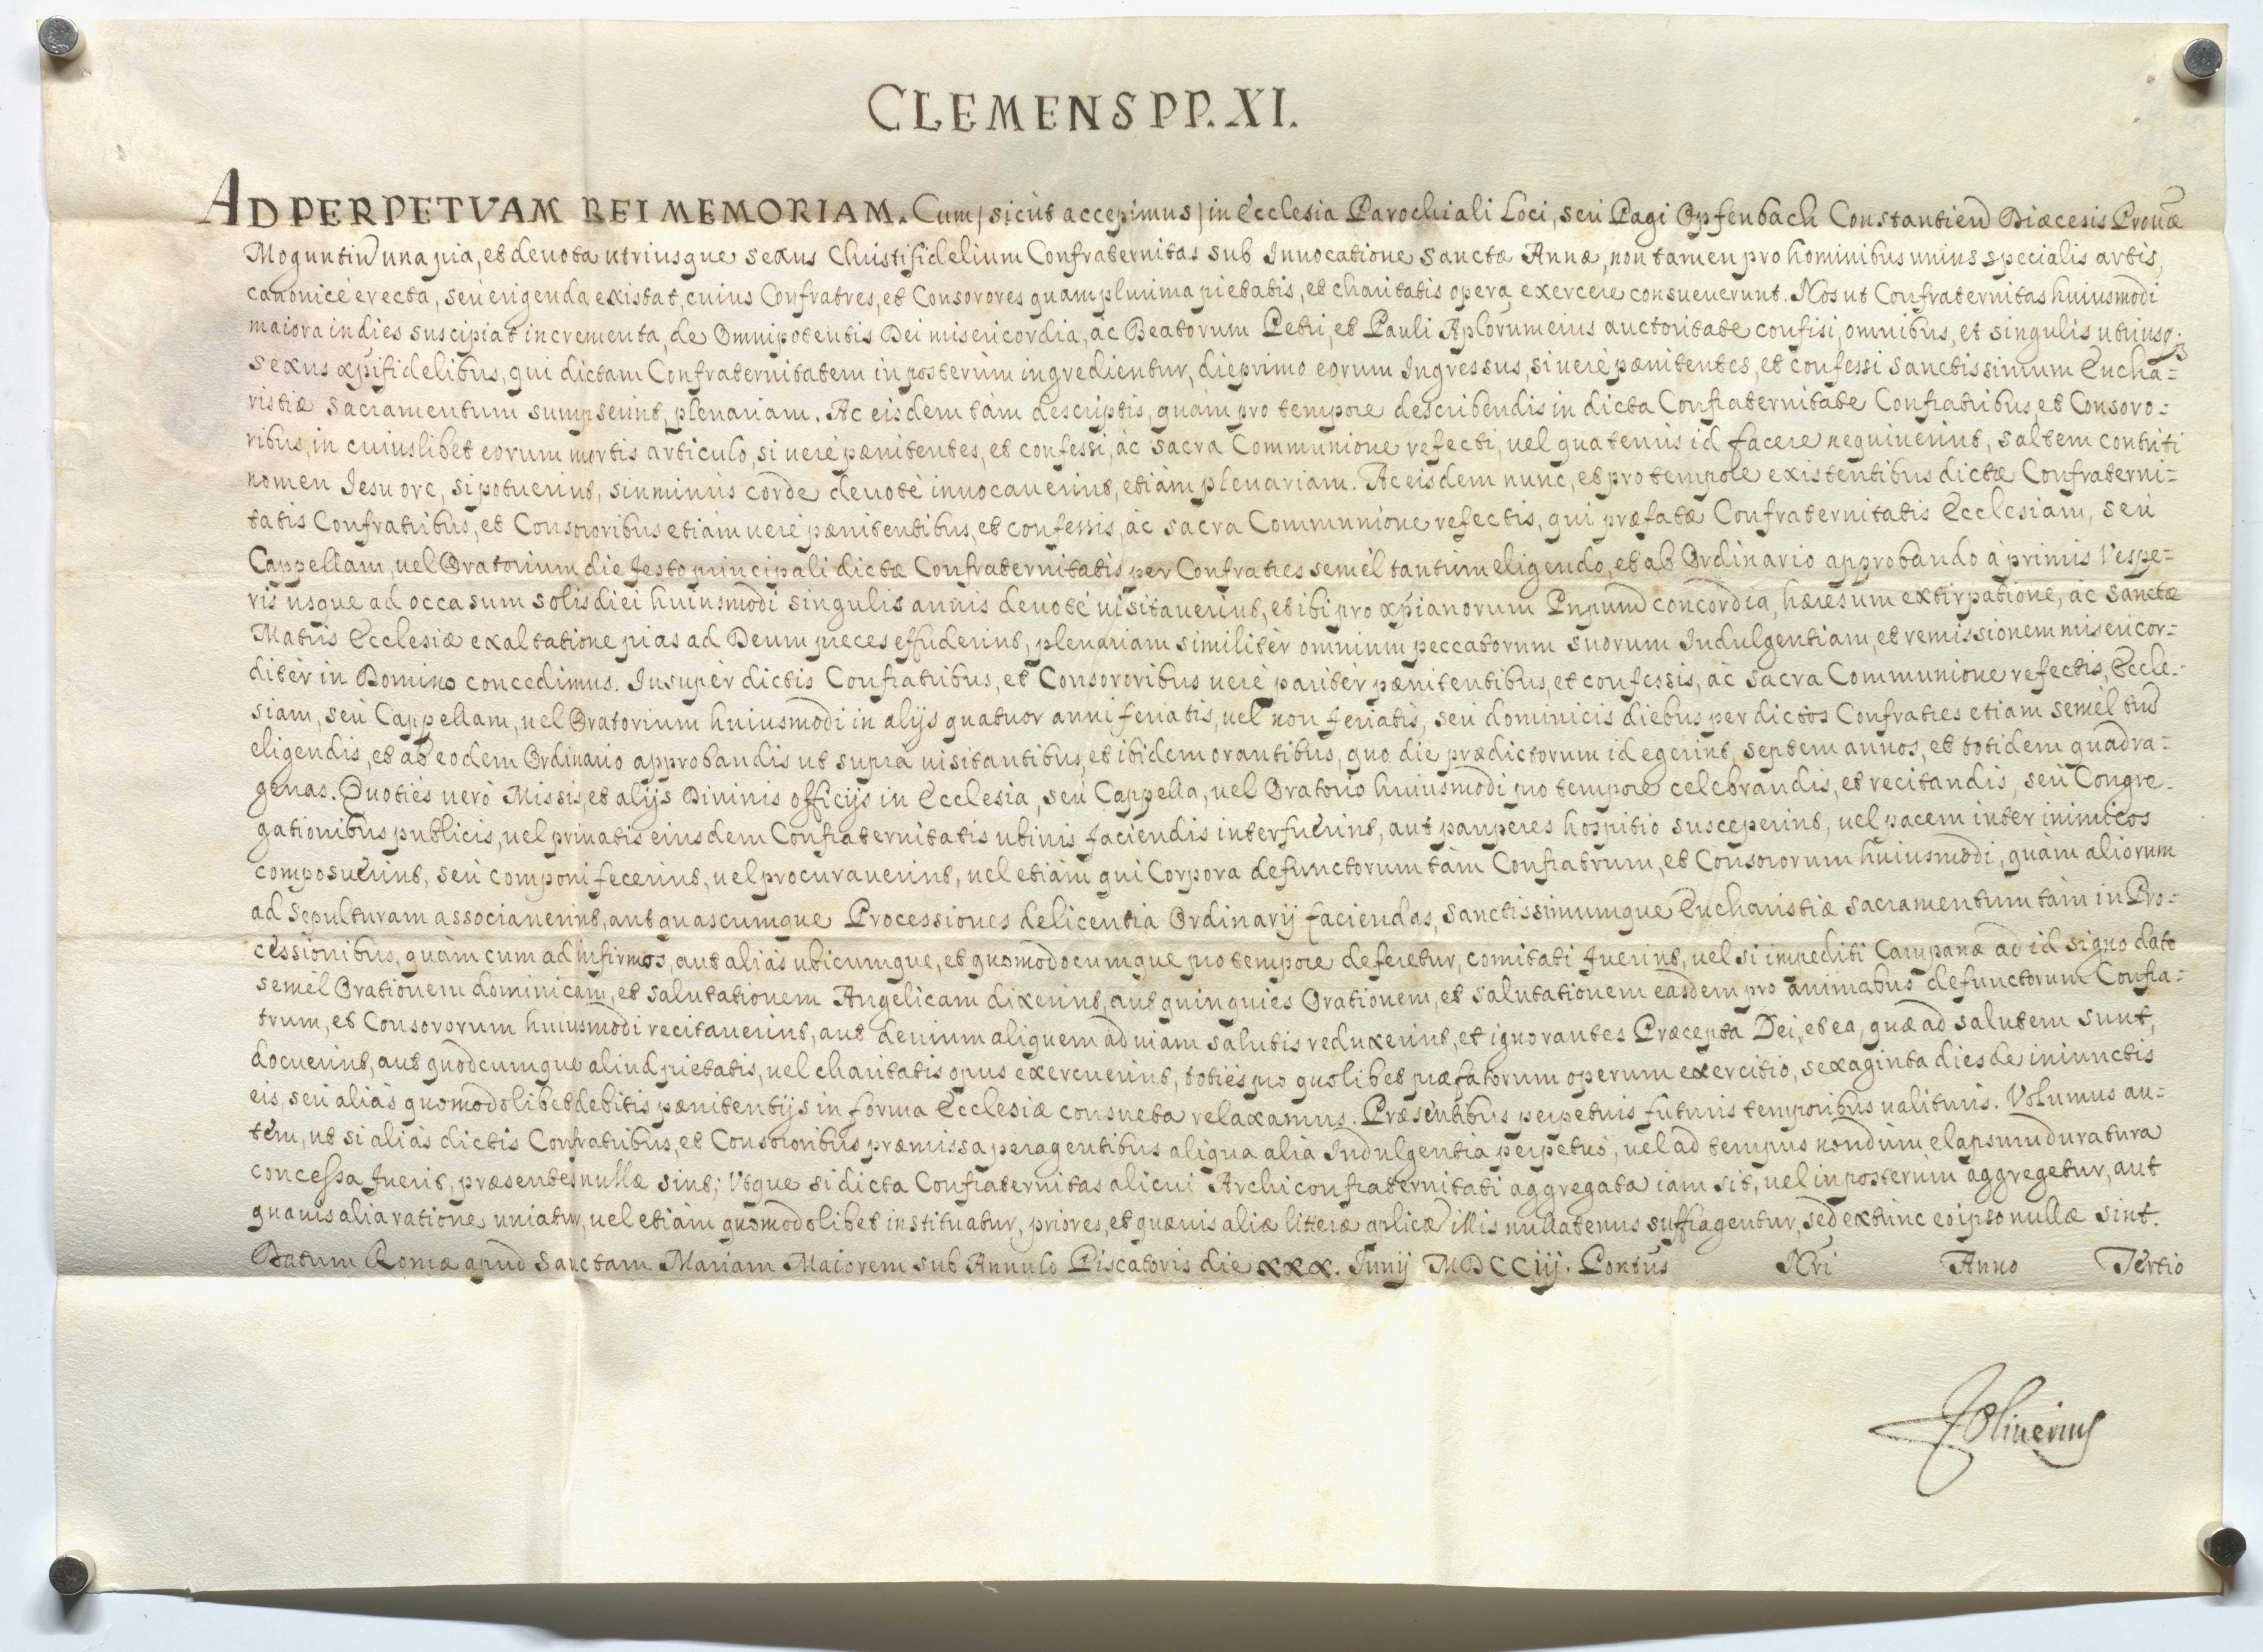 CLEMENS PP. XI.
AD PERPETVAM REI MEMORIAM. Cum, sicùt accepimus, in Ecclesia Parochiali Loci, seù Pagi Opfenbach Constantien Diæcesis Prouæ
Moguntin una pia, et deuota utriusque sexus Christifidelium Confraternitas sub Inuocatione Sanctæ Annæ, non tamen pro hominibus unius specialis artis,
canonicè erecta, seù erigenda existat, cuius Confratres, et Consorores quamplurima pietatis, et charitatis opera exercere consueuerunt. Nos ut Confraternitas huiusmodi
maiora in dies suscipiat incrementa, de Omnipotentis Dei misericordia, ac Beatorum Petri, et Pauli Aplorum eius auctoritate confisi, omnibus, et singulis utriusq;
sexus xp̃ifidelibus, qui dictam Confraternitatem in posterùm ingredientur, die primo eorum Ingressus, si uerè pænitentes, et confessi Sanctissimum Eucha=
ristiæ Sacramentum sumpserint, plenariam. Ac eisdem tàm descriptis, quàm pro tempore describendis in dicta Confraternitate Confratribus, et Consoro=
ribus, in cuiuslibet eorum mortis articulo, si uerè pænitentes, et confessi, ac Sacra Communione refecti, uel quatenùs id facere nequiuerint, saltem contriti
nomen Iesu ore, si potuerint, sin minùs corde deuotè inuocauerint, etiàm plenariam. Ac eisdem nunc, et pro tempore existentibus dictæ Confraterni=
tatis Confratribus, et Consororibus etiàm uerè pænitentibus, et confessis, ac Sacra Communione refectis, qui præfatæ Confraternitatis Ecclesiam, seù
Cappellam, uel Oratorium die festo principali dictæ Confraternitatis per Confratres semèl tantùm eligendo, et ab Ordinario approbando à primis Vespe=
ris usque ad occasum solis diei huiusmodi singulis annis deuotè uisitauerint, et ibi pro xp̃ianorum Pnpum concordia, hæresum extirpatione, ac Sanctæ
Matris Ecclesiæ exaltatione pias ad Deum preces effuderint, plenariam similitèr omnium peccatorum suorum Indulgentiam, et remissionem misericor=
ditèr in Domino concedimus. Insupèr dictis Confratribus, et Consororibus uerè paritèr pænitentibus, et confessis, ac Sacra Communione refectis, Eccle=
siam, seù Cappellam, uel Oratorium huiusmodi in alijs quatuor anni feriatis, uel non feriatis, seù dominicis diebus per dictos Confratres etiam semèl tm̃
eligendis, et ab eodem Ordinario approbandis ut suprà uisitantibus, et ibidem orantibus, quo die prædictorum id egerint, septem annos, et totidem quadra=
genas. Quotiès uerò Missis, et alijs Diuinis officijs in Ecclesia, seù Cappella, uel Oratorio huiusmodi pro tempore celebrandis, et recitandis, seù Congre=
gationibus publicis, uel priuatis eiusdem Confraternitatis ubiuis faciendis interfuerint, aut pauperes hospitio susceperint, uel pacem inter inimicos
composuerint, seù componi fecerint, uel procurauerint, uel etiàm qui Corpora defunctorum tàm Confratrum, et Consororum huiusmodi, quàm aliorum
ad sepulturam associauerint, aut quascumque Processiones de licentia Ordinarij faciendas, Sanctissimumque Eucharistiæ Sacramentum tàm in Pro=
cessionibus, quàm cum ad Infirmos, aut aliàs ubicumque, et quomodocumque pro tempore deferetur, comitati fuerint, uel si impediti Campanæ ad id signo dato
semèl Orationem dominicam, et Salutationem Angelicam dixerint, aut quinquies Orationem, et Salutationem easdem pro animabus defunctorum Confra=
trum, et Consororum huiusmodi recitauerint, aut deuium aliquem ad uiam salutis reduxerint, et ignorantes Præcepta Dei, et ea, quæ ad salutem sunt,
docuerint, aut quodcumque aliud pietatis, uel charitatis opus exercuerint, totiès pro quolibet præfatorum operum exercitio, sexaginta dies de iniunctis
eis, seù aliàs quomodolibet debitis pænitentijs in forma Ecclesiæ consueta relaxamus. Præsentibus perpetuis futuris temporibus ualituris. Volumus au=
tem, ut si aliàs dictis Confratribus, et Consororibus præmissa peragentibus aliqua alia Indulgentia perpetuò, uel ad tempus nondùm elapsum duratura
concessa fuerit, præsentes nullæ sint; Vtque si dicta Confraternitas alicui Archiconfraternitati aggregata iam sit, uel in posterùm aggregetur, aut
quauis alia ratione uniatur, uel etiàm quomodolibet instituatur, priores, et quæuis aliæ litteræ aplicæ illis nullatenus suffragentur, sed extùnc eo ipso nullæ sint.
Datum Romæ apud Sanctam Mariam Maiorem sub Annulo Piscatoris die XXX. Iunij MDCCiij. Pontus Nr̃i Anno Tertio
Oliuerius